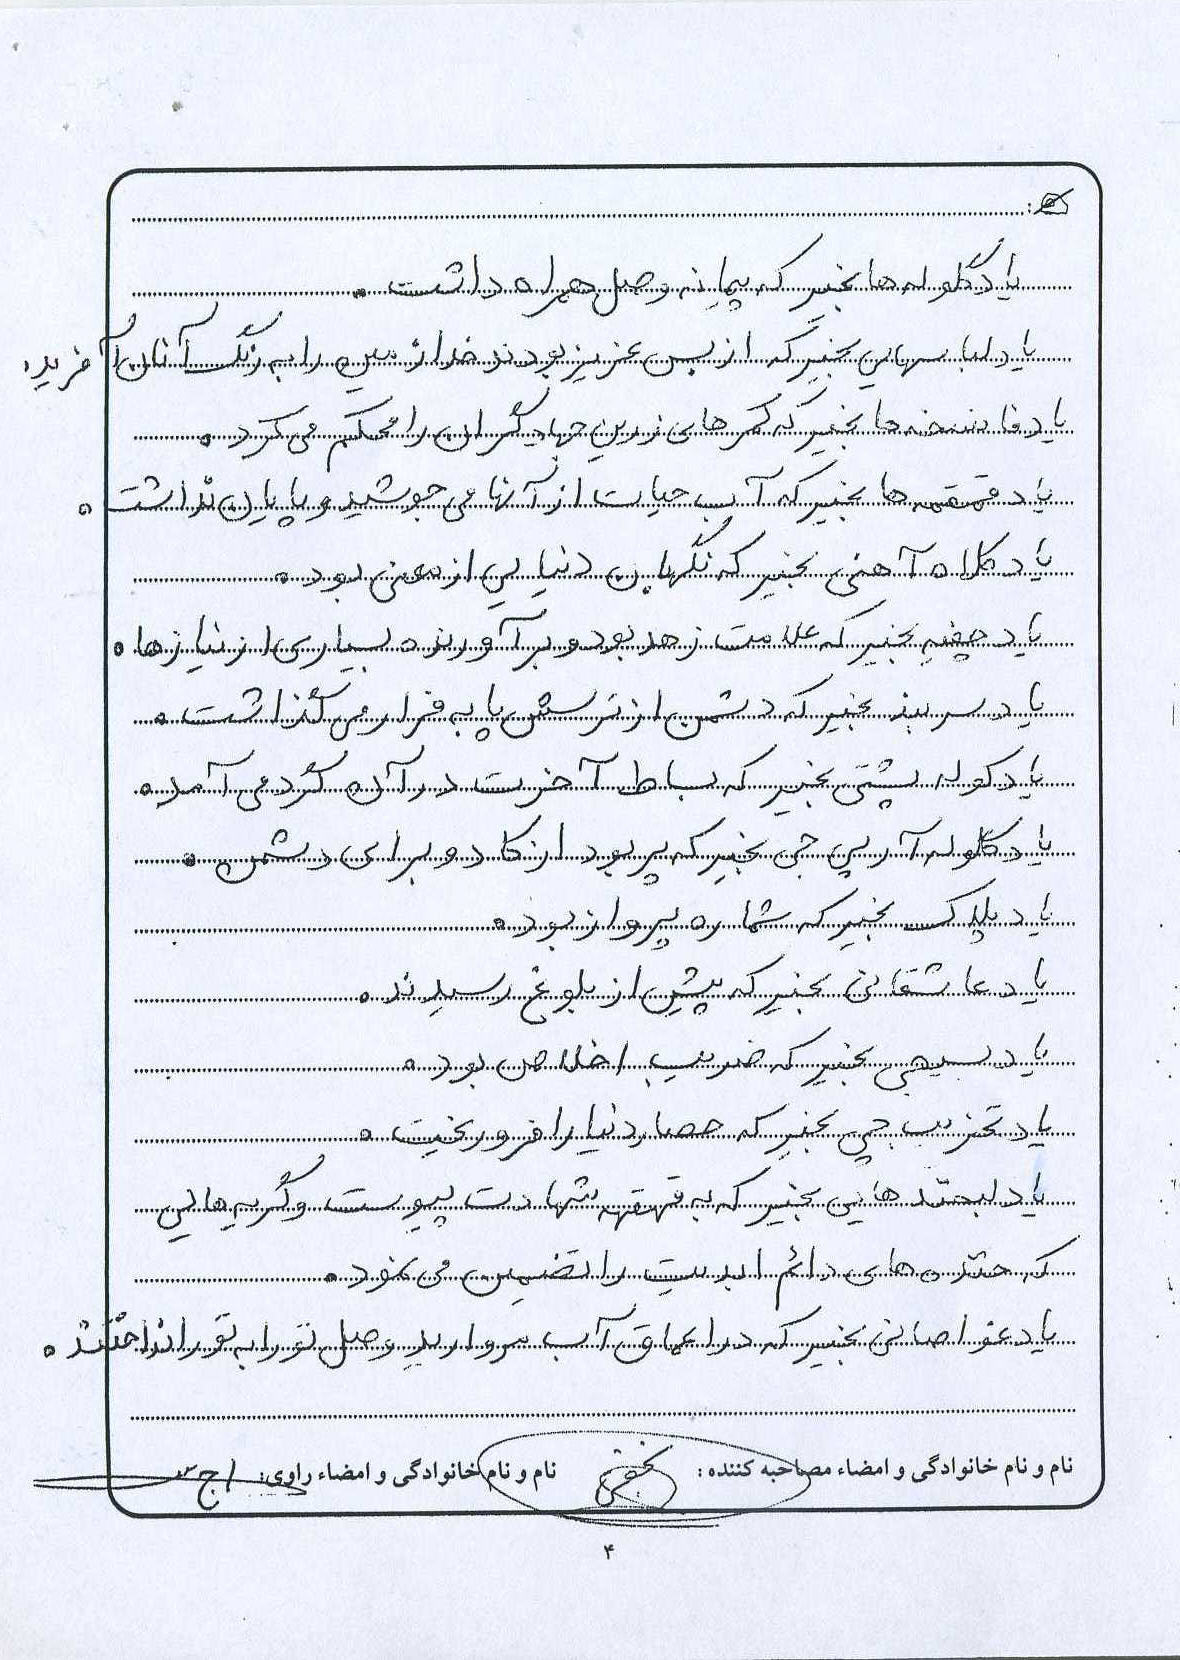 یاد گلوله ها بخیر که پیمانه وصل همراه داشت .
یاد لباسهایی بخیر که از بس عزیز بودند خدا زمین را به رنگ آنان آفرید.
یاد فانسخه ها بخیر که کمرهای زرین جهادگران را محکم می کرد .
یاد قمقمه ها بخیر که آب حیات از آنها می جوشید و پایان نداشت .
یاد کلاه آهنی بخیر که نگهبان دنیایی از معنی بود .
یاد چفیه بخیر که علامت زهد بود و برآورنده بسیاری از نیازها .
یاد سربند بخیر که دشمن از ترسش پا به فرار می گذاشت .
یاد کوله پشتی بخیر که بساط آخرت در آن گرد می آمد .
یاد گلوله آرپی جی بخیر که پر بود از کادو برای دشمن .
یاد پلاک بخیر که شماره پرواز بود .
یاد عاشقانی بخیر که پیش از بلوغ رسیدند .
یاد بسیجی بخیر که ضریب اخلاص بود .
یاد تخریب چی بخیر که حصار دنیا را فرو ریخت .
یاد لبخندهایی بخیر که به قهقهه شهادت پیوست و گریه هایی
که خنده های دائم ابدیت را تضمین می نمود .
یاد غواصانی بخیر که در اعماق آب مروارید وصل تو را به تور انداختند .
نام و نام خانوادگی و امضاء مصاحبه کننده: نام و نام خانوادگی و امضاء راوی:
۴